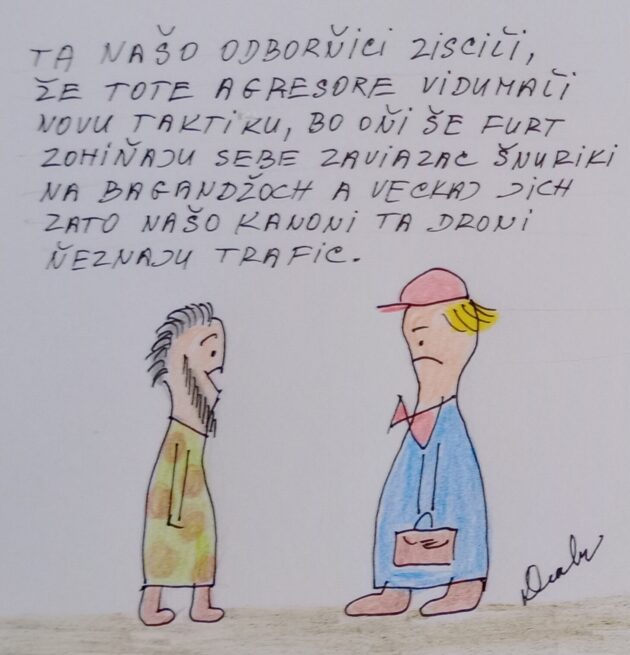 TA NAŠO ODBORŇICI ZISCIĽI,
ŽE TOTE AGRESORE VIDUMAĽI
NOVU TAKTIKU, BO OŇI ŠE FURT
ZOHIŇAJU SEBE ZAVIAZAC ŠNURIKI
NA BAGANDŽOCH A VECKAJ JICH
ZATO NAŠO KANONI TA DRONI
ŇEZNAJU TRAFIC.